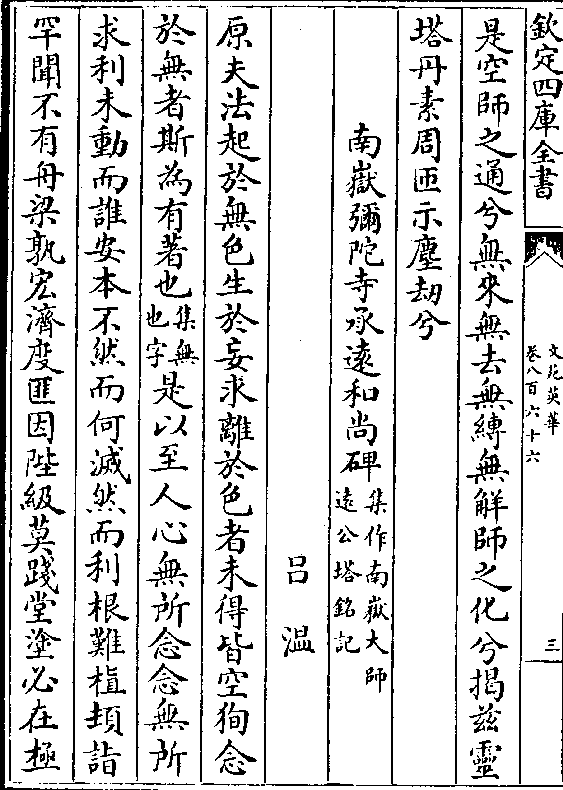 欽定四庫全書
文苑英華
卷八百六十六
三
是空師之通兮無來無去無縛無解師之化兮揭茲靈
塔丹素周匝示塵劫兮
南嶽彌陀寺承遠和尚碑集作南嶽大師遠公塔銘記
呂溫
原夫法起於無色生於妄求離於色者未得皆空狥念
於無者斯為有著也集無也字是以至人心無所念念無所
求利未動而誰安本不然而何滅然而利根難植頓詣
罕聞不有舟梁孰宏濟度匪因陛級莫踐堂塗必在極